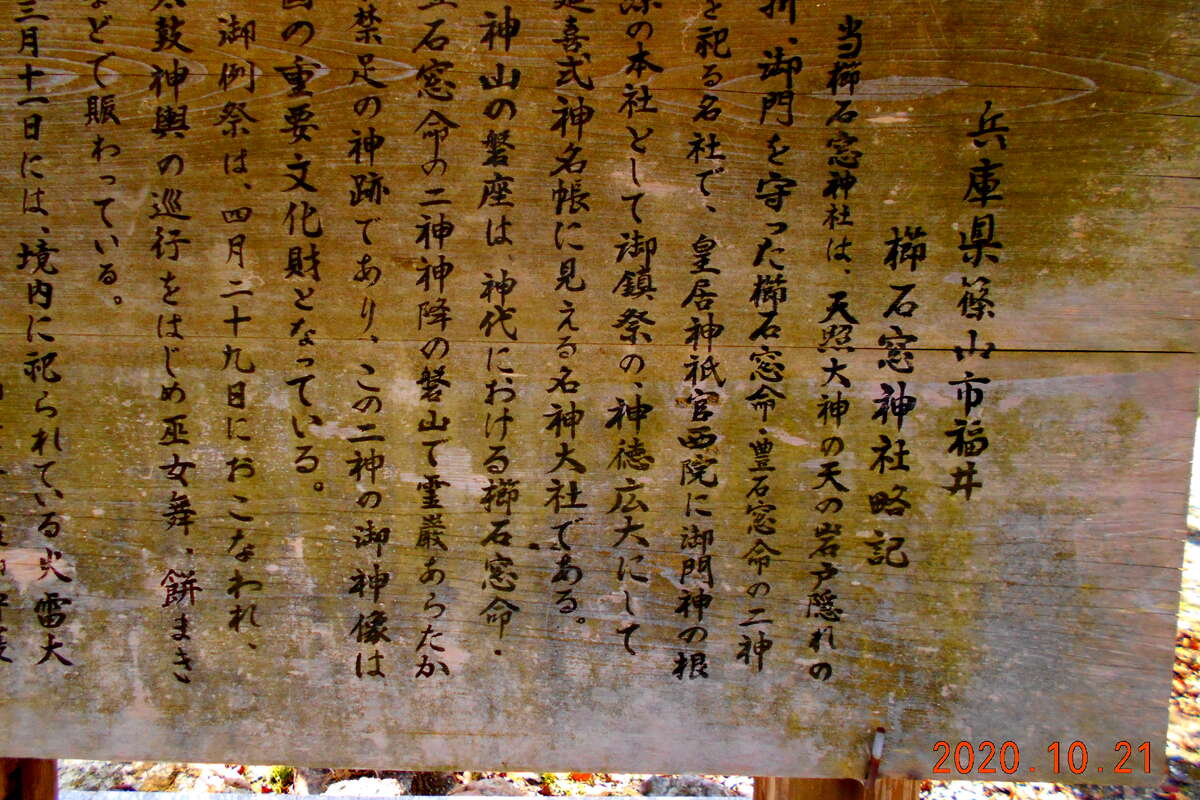 兵庫県篠山市福井
櫛石窓神社略記
当櫛石窓神社は、天照大神の天の岩戸隠れの
折、御門を守った櫛石窓命・豊石窓命の二神
を祀る名社で、皇居神祇官西院に御門神の根
源の本社として御鎮祭の、神徳広大にして
延喜式神名帳に見える名神大社である。
神山の磐座は、神代における櫛石窓命・
豊石窓命の二神神降の磐山で霊巌あらたか
禁足の神跡であり、この二神の御神像は
の重要文化財となっている。
御例祭は、四月二十九日におこなわれ、
太鼓神輿の巡行をはじめ巫女舞、餅まき
などで賑わっている。
三月十一日には、境内に祀られている火雷大
2020.10.21